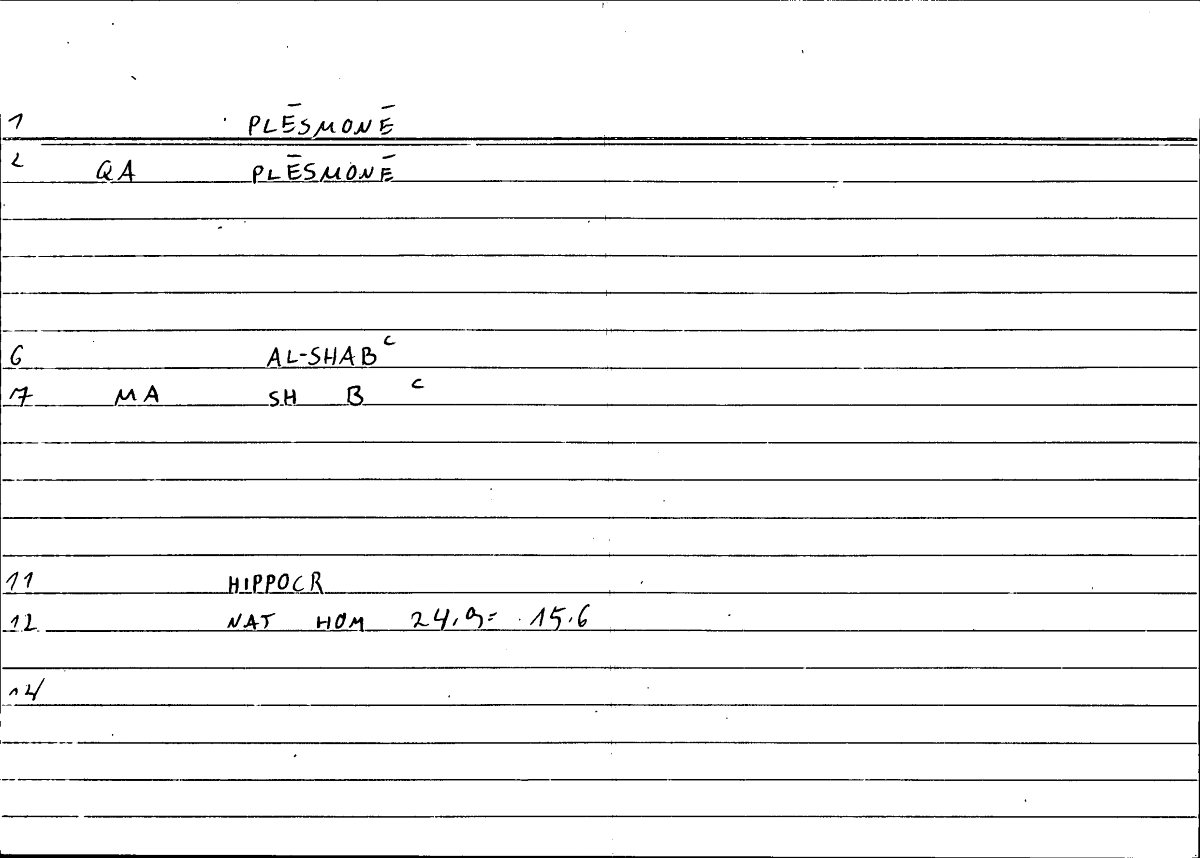 1 PLĒSMONĒ
2 QA PLĒSMONĒ
6 AL-SHABᶜ
7 MA SH B ᶜ
11 HIPPOCR
12 NAT HOM 24,9= 15.6
14